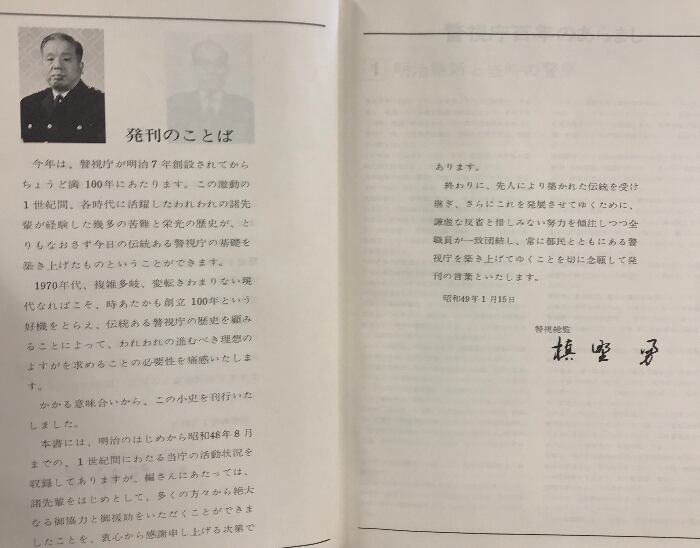 発刊のことば
今年は、警視庁が明治7年創設されてから
ちょうど満100年にあたります。この激動の
1世紀間、各時代に活躍したわれわれの諸先
輩が経験した幾多の苦難と栄光の歴史が、と
りもなおさず今日の伝統ある警視庁の基礎を
築き上げたものということができます。
1970年代、複雑多岐、変転きわまりない現
代なればこそ、時あたかも創立100年という
好機をとらえ、伝統ある警視庁の歴史を顧み
ることによって、われわれの進むべき理想の
よすがを求めることの必要性を痛感いたしま
す。
かかる意味合いから、この小史を刊行いた
しました。
本書には、明治のはじめから昭和48年8月
までの、1世紀間にわたる当庁の活動状況を
収録してありますが、編さんにあたっては、
諸先輩をはじめとして、多くの方々から絶大
なる御協力と御援助をいただくことができま
したことを、衷心から感謝申し上げる次第で
あります。
終わりに、先人により築かれた伝統を受け
継ぎ、さらにこれを発展させてゆくために、
謙虚な反省と惜しみない努力を傾注しつつ全
職員が一致団結し、常に都民とともにある警
視庁を築き上げてゆくことを切に念願して発
刊の言葉といたします。
昭和49年1月15日
警視総監
槙野 勇
警視庁百年のあらまし
1 明治維新と当時の警察